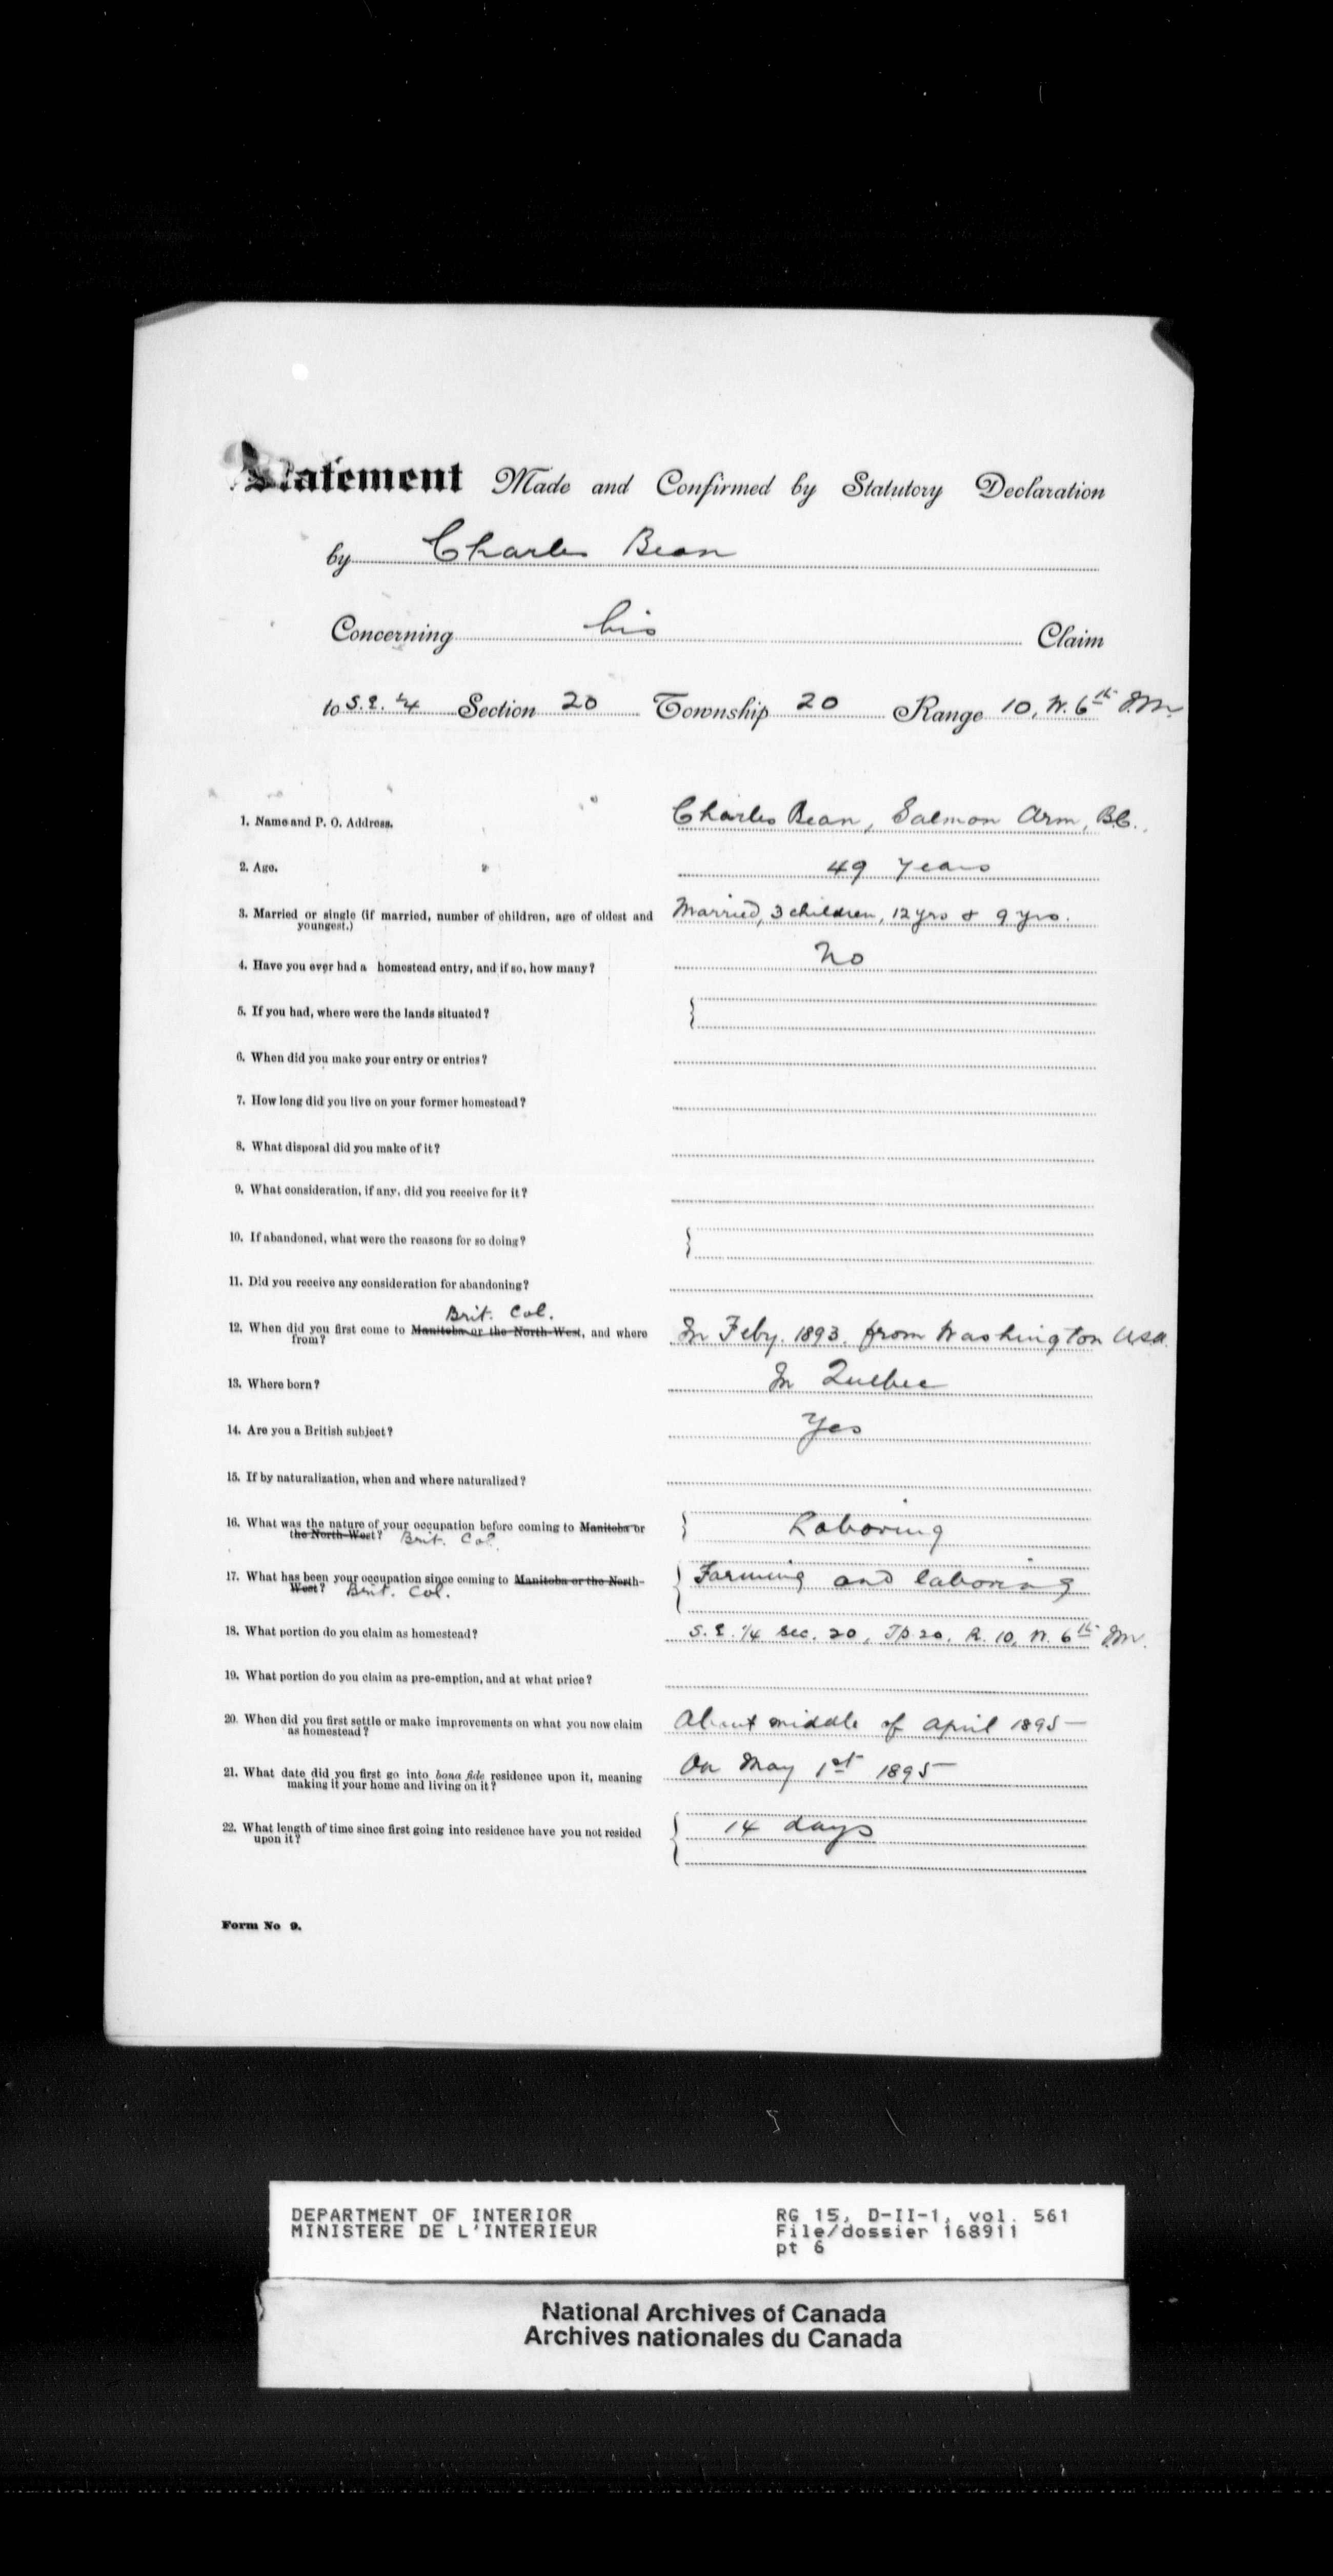 Statement Made and Confirmed by Statutory Declaration
by Charles Bean
Concerning his Claim
to S.E. 1/4 Section 20 Township 20 Range 10, W. 6th I.M.
1. Name and P. O. Address. Charles Bean, Salmon Arm, B.C.
2. Age. 49 Years
3. Married or single (if married, number of children, age of oldest and Married, 3 children, 12 yrs & 9 yrs.
youngest.)
4. Have you ever had a homestead entry, and if so, how many? No
5. If you had, where were the lands situated?
6. When did you make your entry or entries?
7. How long did you live on your former homestead?
8. What disposal did you make of it?
9. What consideration, if any, did you receive for it?
10. If abandoned, what were the reasons for so doing?
11. Did you receive any consideration for abandoning?
Brit. Col.
12. When did you first come to Manitoba or the North-West, and where In Feby. 1893. from Washington USA.
from?
13. Where born? In Quebec
14. Are you a British subject? Yes
15. If by naturalization, when and where naturalized?
16. What was the nature of your occupation before coming to Manitoba or Laboring
the North-West? Brit. Col.
17. What has been your occupation since coming to Manitoba or the North- Farming and laboring
West? Brit. Col.
18. What portion do you claim as homestead? S.E. 1/4 Sec. 20, Tp. 20, R. 10, W. 6th I.M.
19. What portion do you claim as pre-emption, and at what price?
20. When did you first settle or make improvements on what you now claim About middle of April 1895
as homestead?
21. What date did you first go into bona fide residence upon it, meaning On May 1st 1895
making it your home and living on it?
22. What length of time since first going into residence have you not resided 14 days
upon it?
Form No 9.
DEPARTMENT OF INTERIOR RG 15, D-II-1, vol. 561
MINISTERE DE L'INTERIEUR File/dossier 168911
pt 6
National Archives of Canada
Archives nationales du Canada